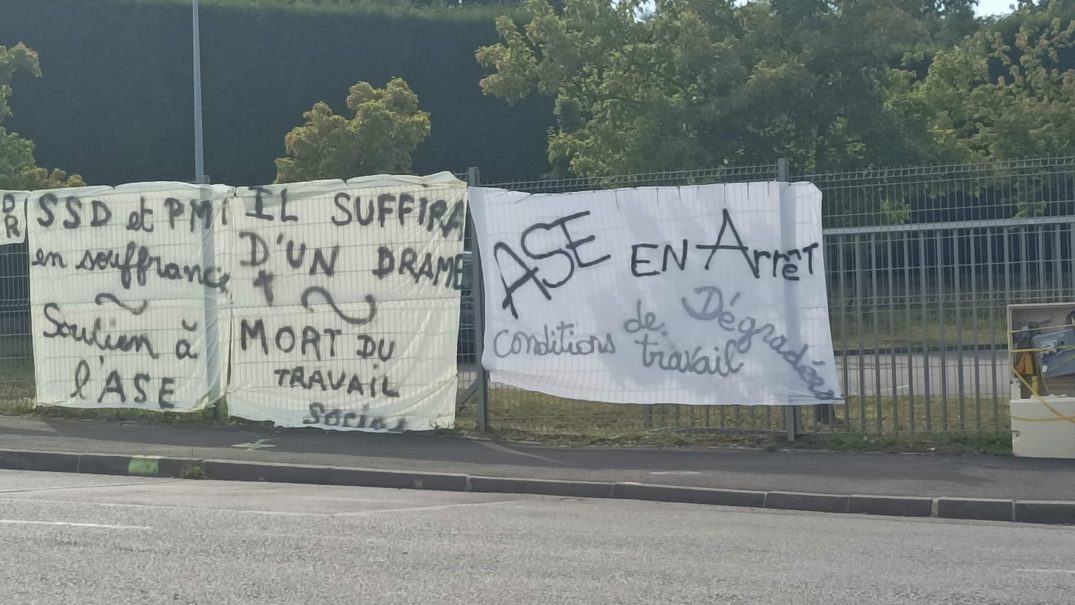 DR
SSD et PMI
en souffrance
~
Soutien à
l'ASE
IL SUFFIRA
D'UN DRAME
† ~
MORT DU
TRAVAIL
Social
ASE EN ArrêT
conditions de travail Dégradées